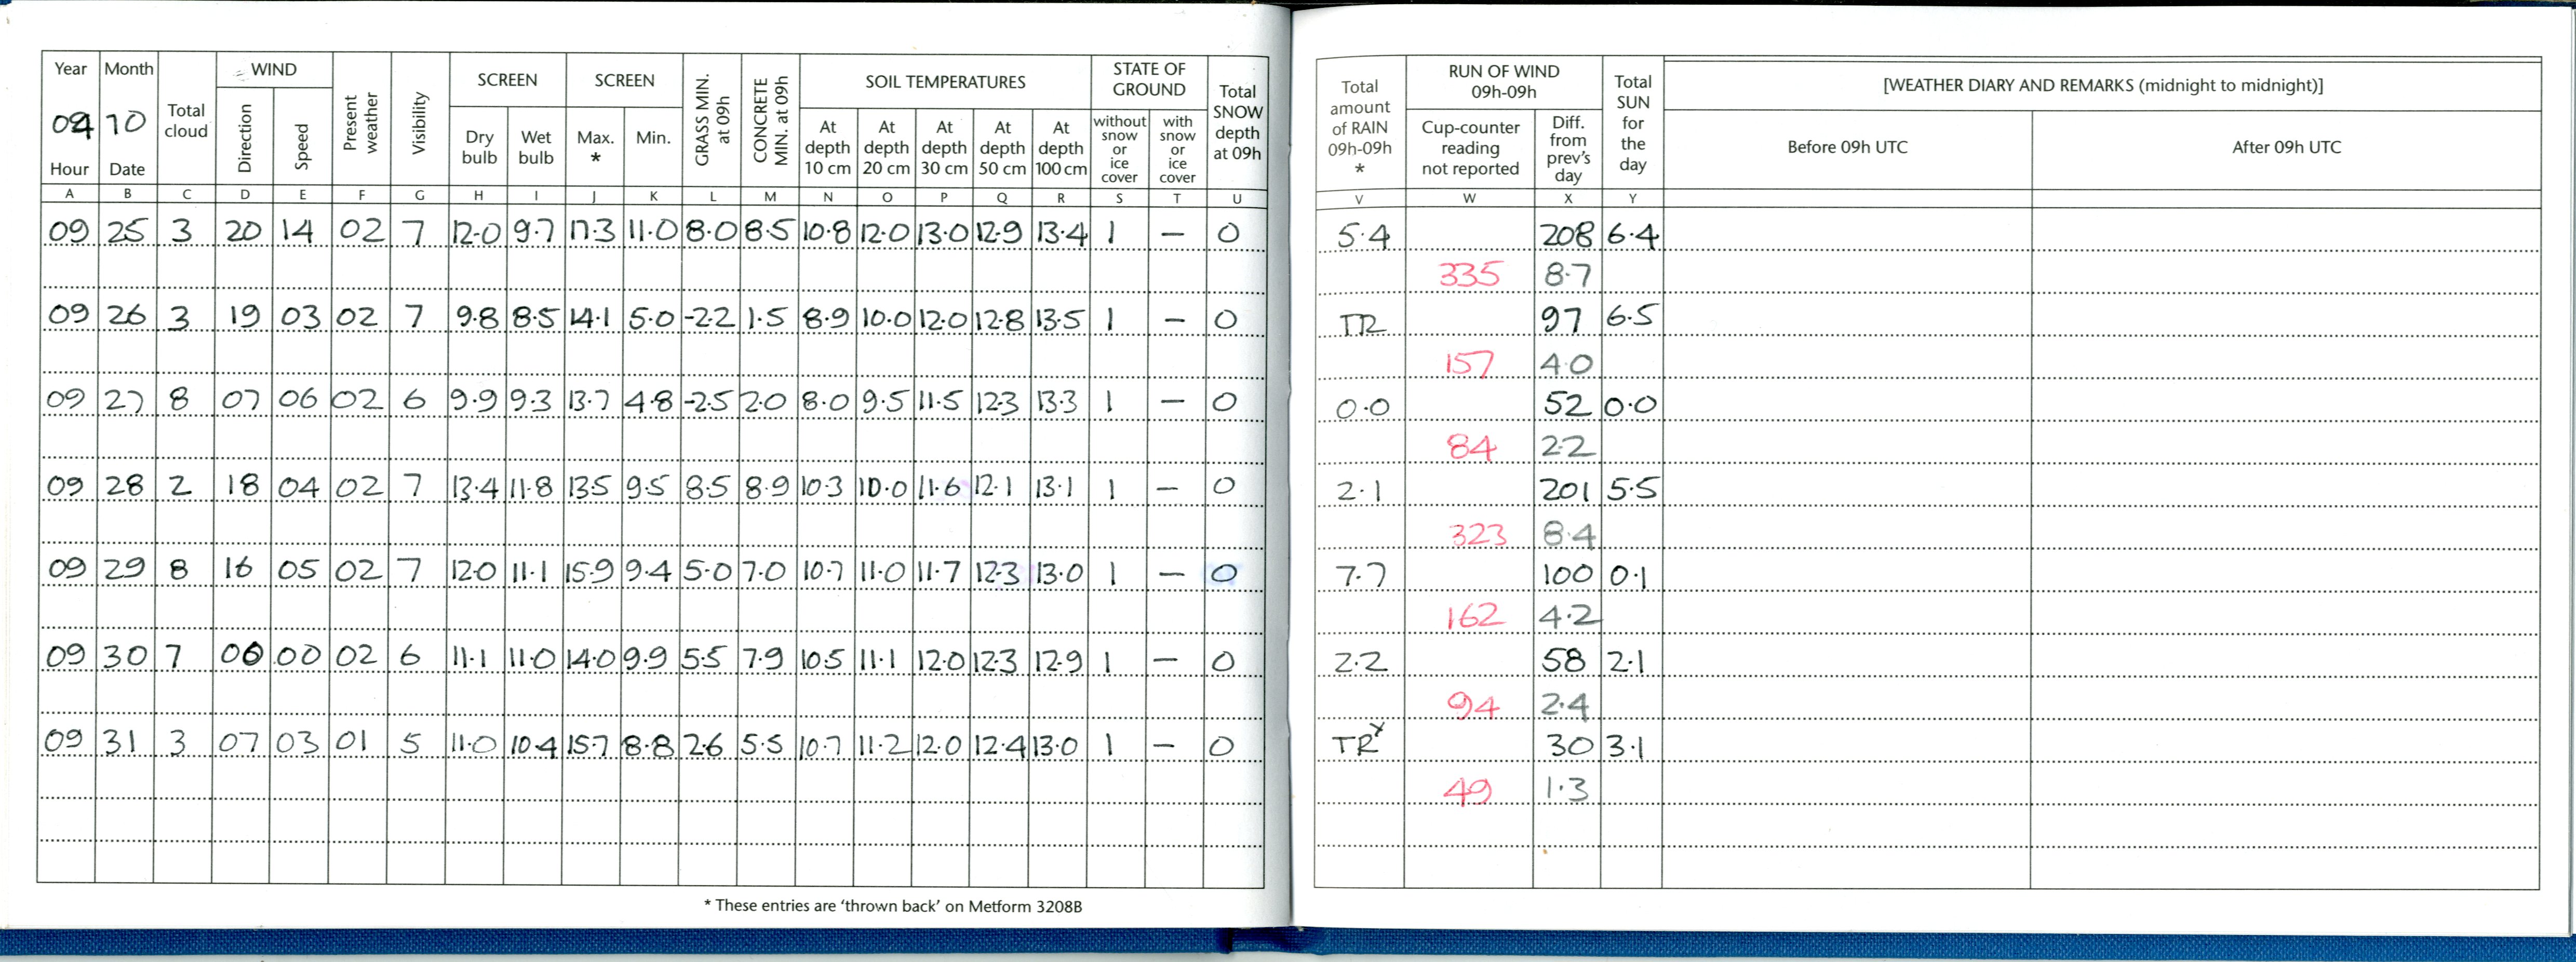 Year Month Total cloud WIND Present weather Visibility SCREEN SCREEN GRASS MIN. at 09h CONCRETE MIN. at 09h SOIL TEMPERATURES STATE OF GROUND Total SNOW depth at 09h
Direction Speed Dry bulb Wet bulb Max. * Min. At depth 10 cm At depth 20 cm At depth 30 cm At depth 50 cm At depth 100 cm without snow or ice cover with snow or ice cover
09 10
Hour Date
A B C D E F G H I J K L M N O P Q R S T U
09 25 3 20 14 02 7 12.0 9.7 17.3 11.0 8.0 8.5 10.8 12.0 13.0 12.9 13.4 1 — 0
09 26 3 19 03 02 7 9.8 8.5 14.1 5.0 -2.2 1.5 8.9 10.0 12.0 12.8 13.5 1 — 0
09 27 8 07 06 02 6 9.9 9.3 13.7 4.8 -2.5 2.0 8.0 9.5 11.5 12.3 13.3 1 — 0
09 28 2 18 04 02 7 13.4 11.8 13.5 9.5 8.5 8.9 10.3 10.0 11.6 12.1 13.1 1 — 0
09 29 8 16 05 02 7 12.0 11.1 15.9 9.4 5.0 7.0 10.7 11.0 11.7 12.3 13.0 1 — 0
09 30 7 00 00 02 6 11.1 11.0 14.0 9.9 5.5 7.9 10.5 11.1 12.0 12.3 12.9 1 — 0
09 31 3 07 03 01 5 11.0 10.4 15.7 8.8 2.6 5.5 10.7 11.2 12.0 12.4 13.0 1 — 0
* These entries are ‘thrown back’ on Metform 3208B
Total amount of RAIN 09h-09h * RUN OF WIND 09h-09h Total SUN for the day [WEATHER DIARY AND REMARKS (midnight to midnight)]
Cup-counter reading not reported Diff. from prev's day Before 09h UTC After 09h UTC
V W X Y
5.4 208 6.4
335 8.7
TR 97 6.5
157 4.0
0.0 52 0.0
84 2.2
2.1 201 5.5
323 8.4
7.7 100 0.1
162 4.2
2.2 58 2.1
94 2.4
TR 30 3.1
49 1.3